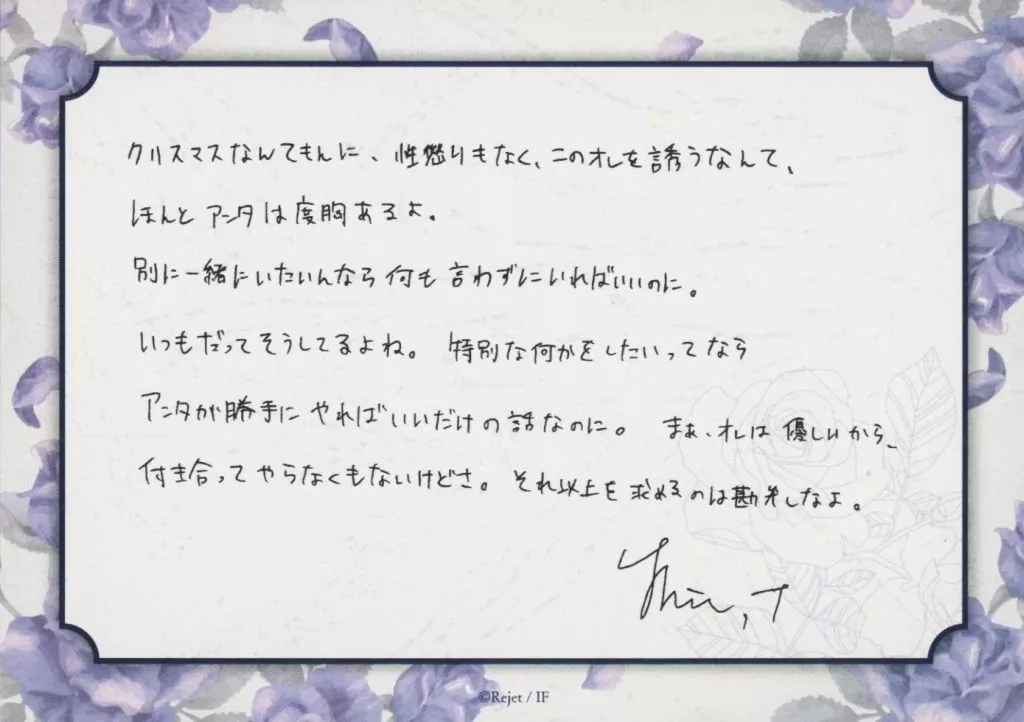 クリスマスなんてもんに、性懲りもなく、このオレを誘うなんて、
ほんと アンタは度胸あるよ。
別に一緒にいたいんなら何も言わずにいればいいのに。
いつもだってそうしてるよね。 特別な何かをしたいってなら
アンタが勝手にやればいいだけの話なのに。 まぁ、オレは優しいから、
付き合ってやらなくもないけどさ。 それ以上を求めるのは勘弁しなよ。
©Rejet / IF